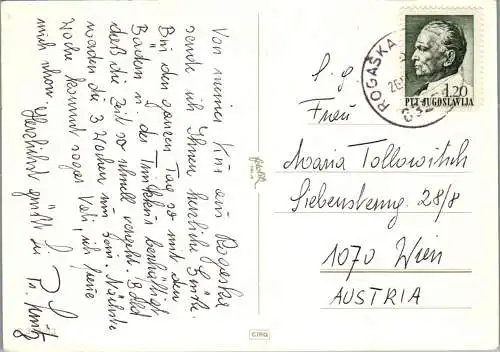 Von meiner Kur in Rogaska
sende ich Ihnen herzliche Grüße.
Bin den ganzen Tag so mit den
Bädern u. der Trinkkur beschäftigt
daß die Zeit so schnell vergeht. Bald
werden die 3 Wochen um sein. Nächste
Woche kommt sogar Vati, ich freue
mich schon. Herzlichst grüßt Sie
ROGAŠKA
1.20
PTT JUGOSLAVIJA
S. g.
Frau
Maria Tollowitsch
Siebensterng. 28/8
1070 Wien
AUSTRIA